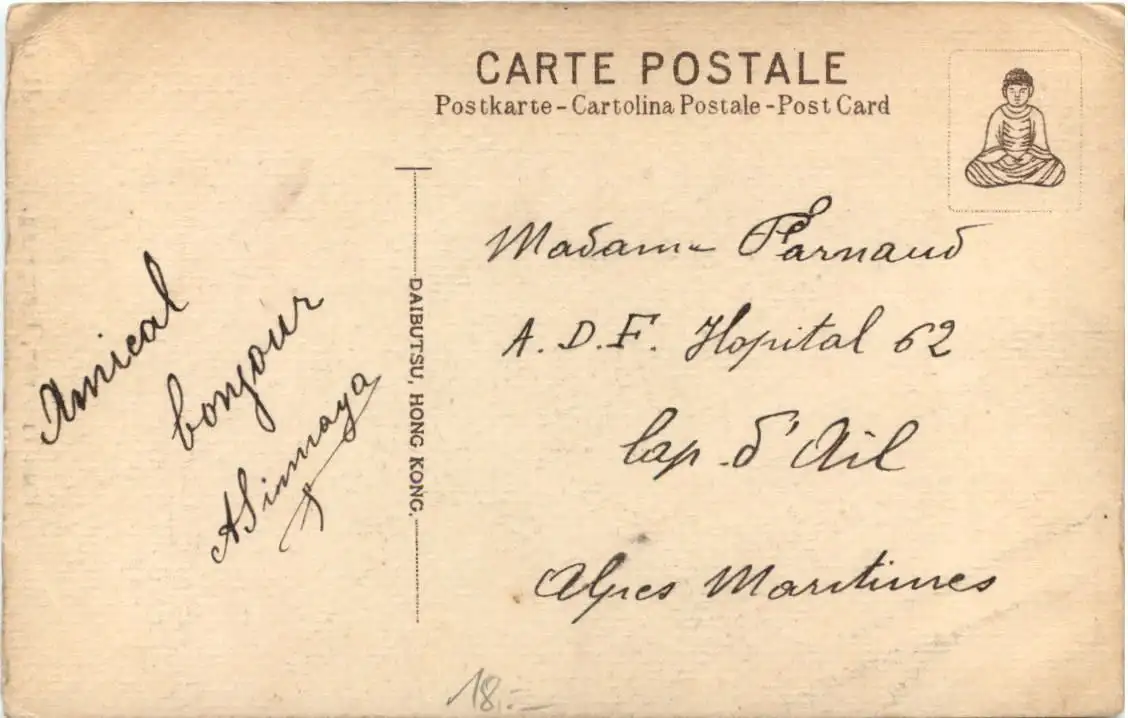 CARTE POSTALE
Postkarte - Cartolina Postale - Post Card
Amical
bonjour
DAIBUTSU, HONG KONG.
Madame Farnaud
A.D.F. Hopital 62
Cap d'Ail
Alpes Maritimes
18.-